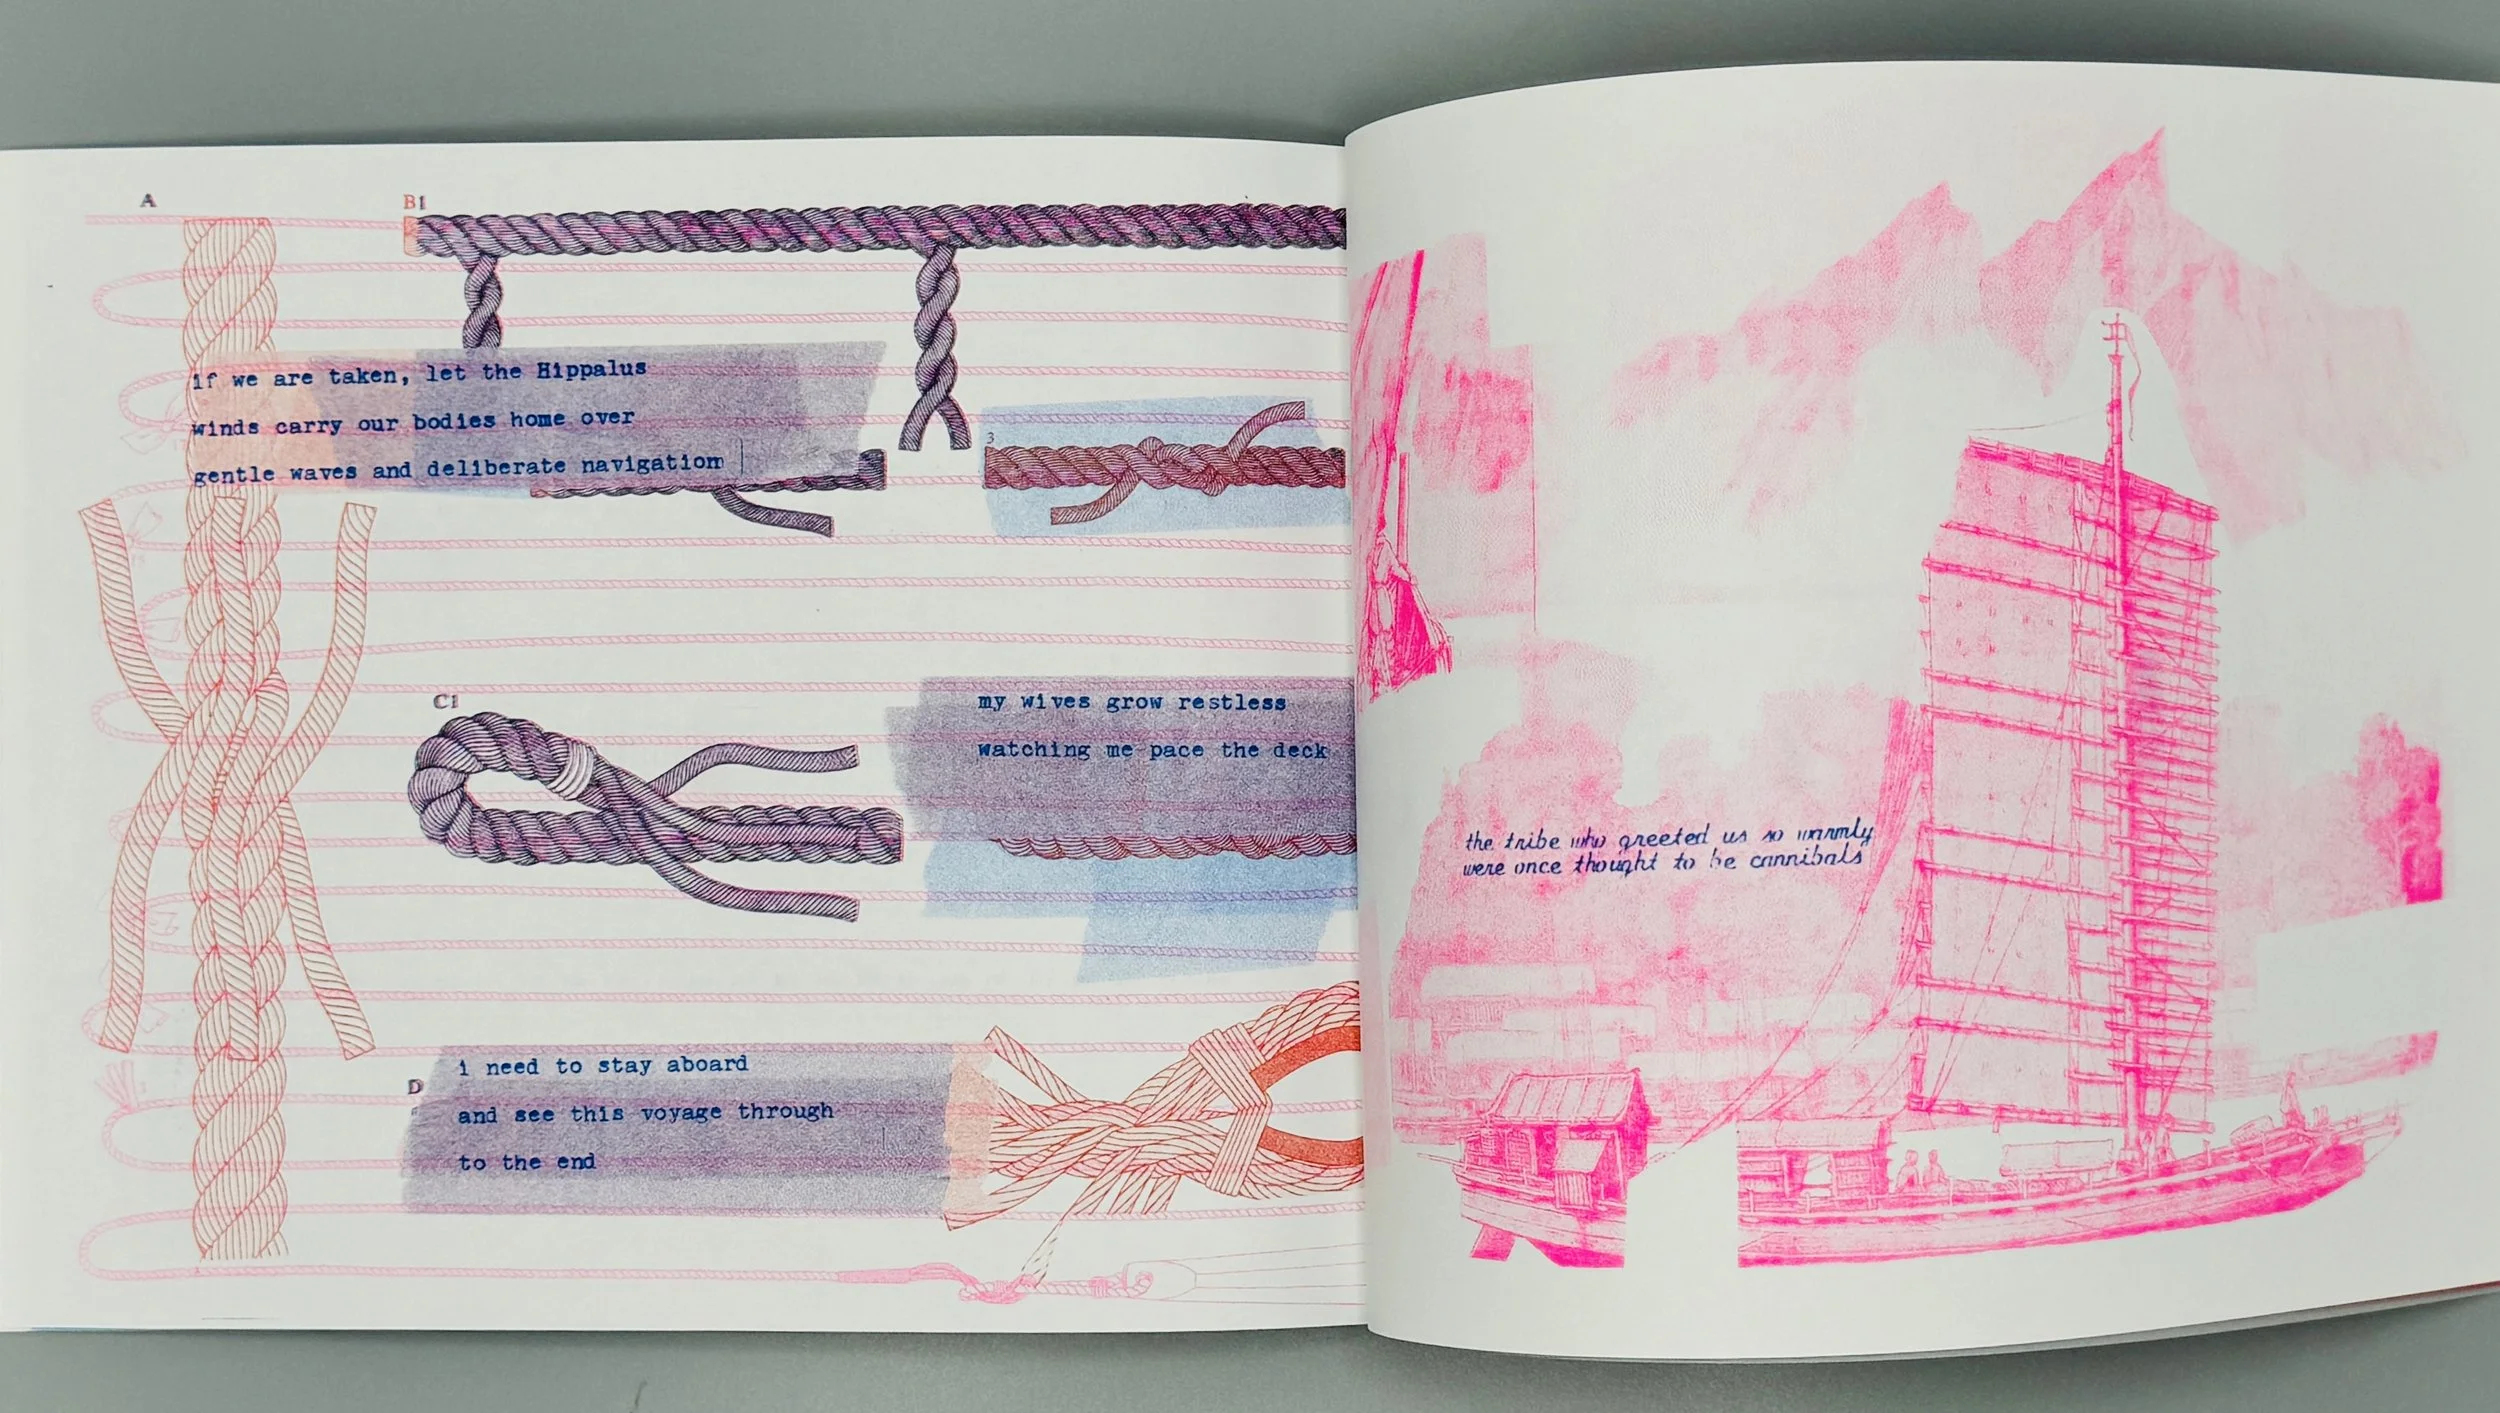 A
B1
if we are taken, let the Hippalus
winds carry our bodies home over
gentle waves and deliberate navigation
3
C1
my wives grow restless
watching me pace the deck
D
i need to stay aboard
and see this voyage through
to the end
the tribe who greeted us so warmly
were once thought to be cannibals